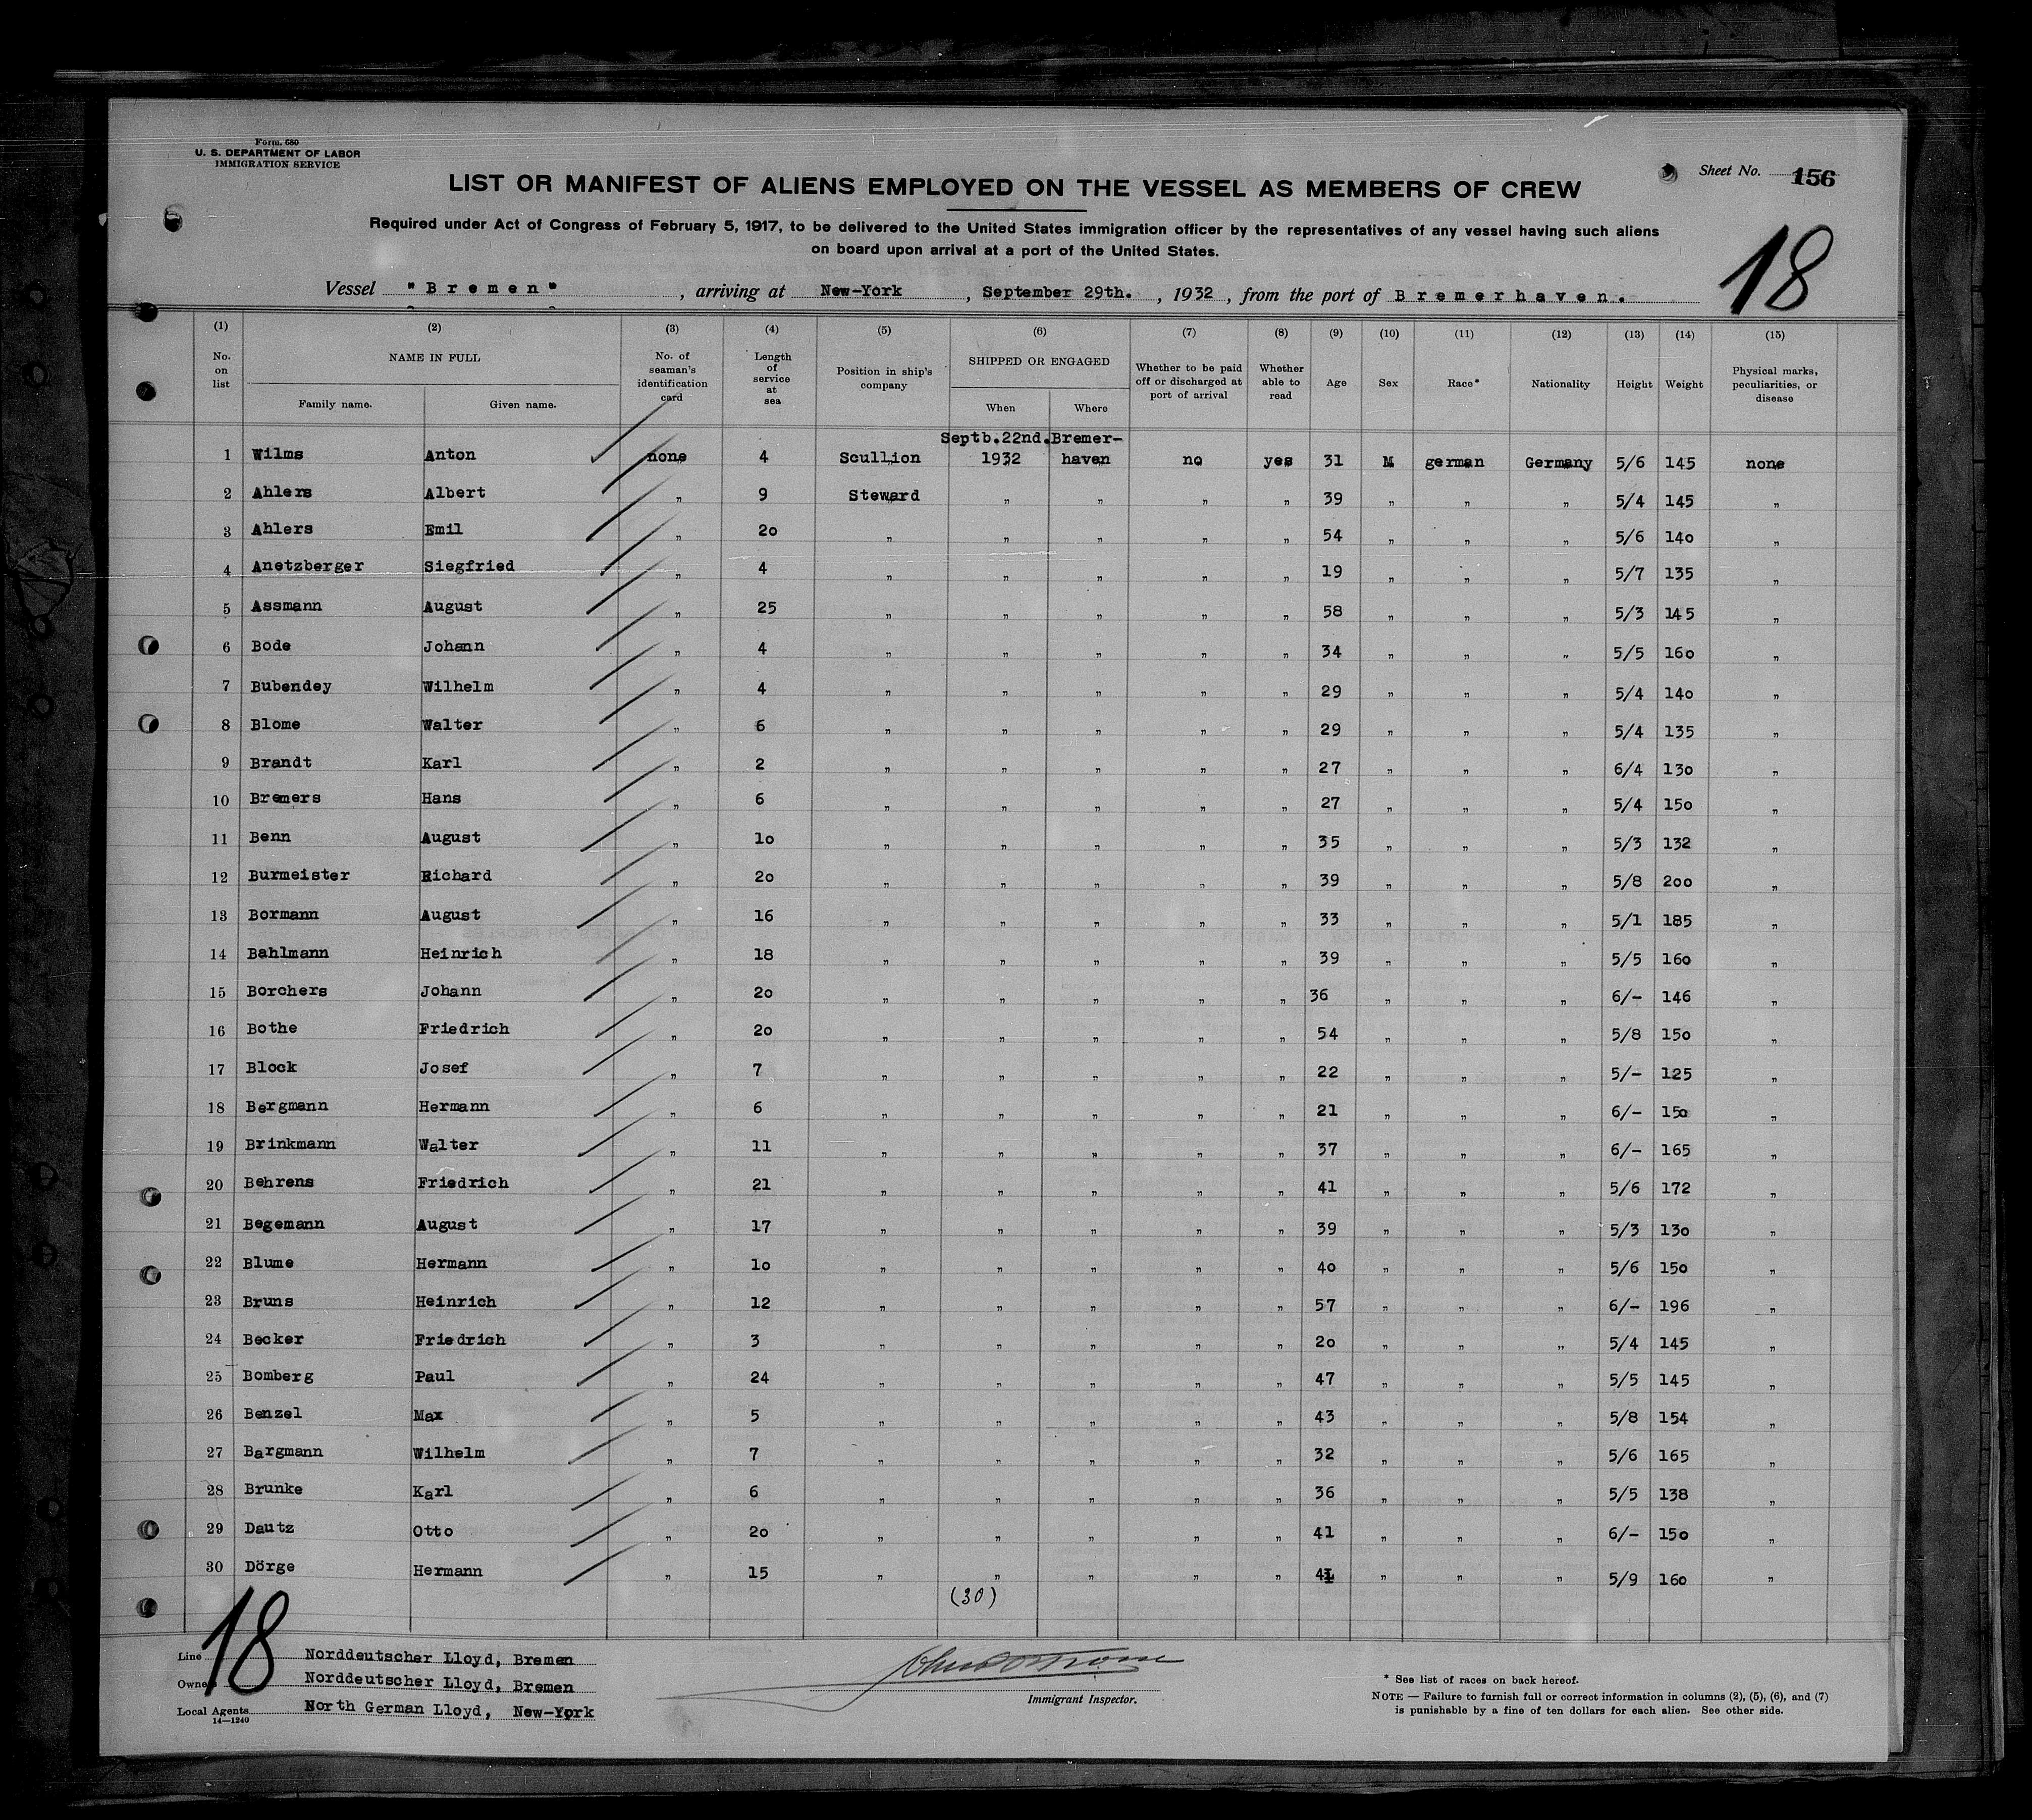 Form. 680
U. S. DEPARTMENT OF LABOR
IMMIGRATION SERVICE
Sheet No. 156
LIST OR MANIFEST OF ALIENS EMPLOYED ON THE VESSEL AS MEMBERS OF CREW
Required under Act of Congress of February 5, 1917, to be delivered to the United States immigration officer by the representatives of any vessel having such aliens
on board upon arrival at a port of the United States.
18
Vessel "Bremen", arriving at New-York, September 29th., 1932, from the port of Bremerhaven.
(1) (2) (3) (4) (5) (6) (7) (8) (9) (10) (11) (12) (13) (14) (15)
No. on list NAME IN FULL Family name. Given name. No. of seaman's identification card Length of service at sea Position in ship's company SHIPPED OR ENGAGED When Where Whether to be paid off or discharged at port of arrival Whether able to read Age Sex Race* Nationality Height Weight Physical marks, peculiarities, or disease
Septb.22nd. Bremer-
1 Wilms Anton none 4 Scullion 1932 haven no yes 31 M german Germany 5/6 145 none
2 Ahlers Albert " 9 Steward " " " " 39 " " " 5/4 145 "
3 Ahlers Emil " 20 " " " " " 54 " " " 5/6 140 "
4 Anetzberger Siegfried " 4 " " " " " 19 " " " 5/7 135 "
5 Assmann August " 25 " " " " " 58 " " " 5/3 145 "
6 Bode Johann " 4 " " " " " 34 " " " 5/5 160 "
7 Bubendey Wilhelm " 4 " " " " " 29 " " " 5/4 140 "
8 Blome Walter " 6 " " " " " 29 " " " 5/4 135 "
9 Brandt Karl " 2 " " " " " 27 " " " 6/4 130 "
10 Bremers Hans " 6 " " " " " 27 " " " 5/4 150 "
11 Benn August " 10 " " " " " 35 " " " 5/3 132 "
12 Burmeister Richard " 20 " " " " " 39 " " " 5/8 200 "
13 Bormann August " 16 " " " " " 33 " " " 5/1 185 "
14 Bahlmann Heinrich " 18 " " " " " 39 " " " 5/5 160 "
15 Borchers Johann " 20 " " " " " 36 " " " 6/- 146 "
16 Bothe Friedrich " 20 " " " " " 54 " " " 5/8 150 "
17 Block Josef " 7 " " " " " 22 " " " 5/- 125 "
18 Bergmann Hermann " 6 " " " " " 21 " " " 6/- 150 "
19 Brinkmann Walter " 11 " " " " " 37 " " " 6/- 165 "
20 Behrens Friedrich " 21 " " " " " 41 " " " 5/6 172 "
21 Begemann August " 17 " " " " " 39 " " " 5/3 130 "
22 Blume Hermann " 10 " " " " " 40 " " " 5/6 150 "
23 Bruns Heinrich " 12 " " " " " 57 " " " 6/- 196 "
24 Becker Friedrich " 3 " " " " " 20 " " " 5/4 145 "
25 Bomberg Paul " 24 " " " " " 47 " " " 5/5 145 "
26 Benzel Max " 5 " " " " " 43 " " " 5/8 154 "
27 Bargmann Wilhelm " 7 " " " " " 32 " " " 5/6 165 "
28 Brunke Karl " 6 " " " " " 36 " " " 5/5 138 "
29 Dautz Otto " 20 " " " " " 41 " " " 6/- 150 "
30 Dörge Hermann " 15 " " " " " 41 " " " 5/9 160 "
(30)
18
Line Norddeutscher Lloyd, Bremen
Owners Norddeutscher Lloyd, Bremen
Local Agents North German Lloyd, New-York
14—1240
Immigrant Inspector.
* See list of races on back hereof.
NOTE — Failure to furnish full or correct information in columns (2), (5), (6), and (7)
is punishable by a fine of ten dollars for each alien. See other side.